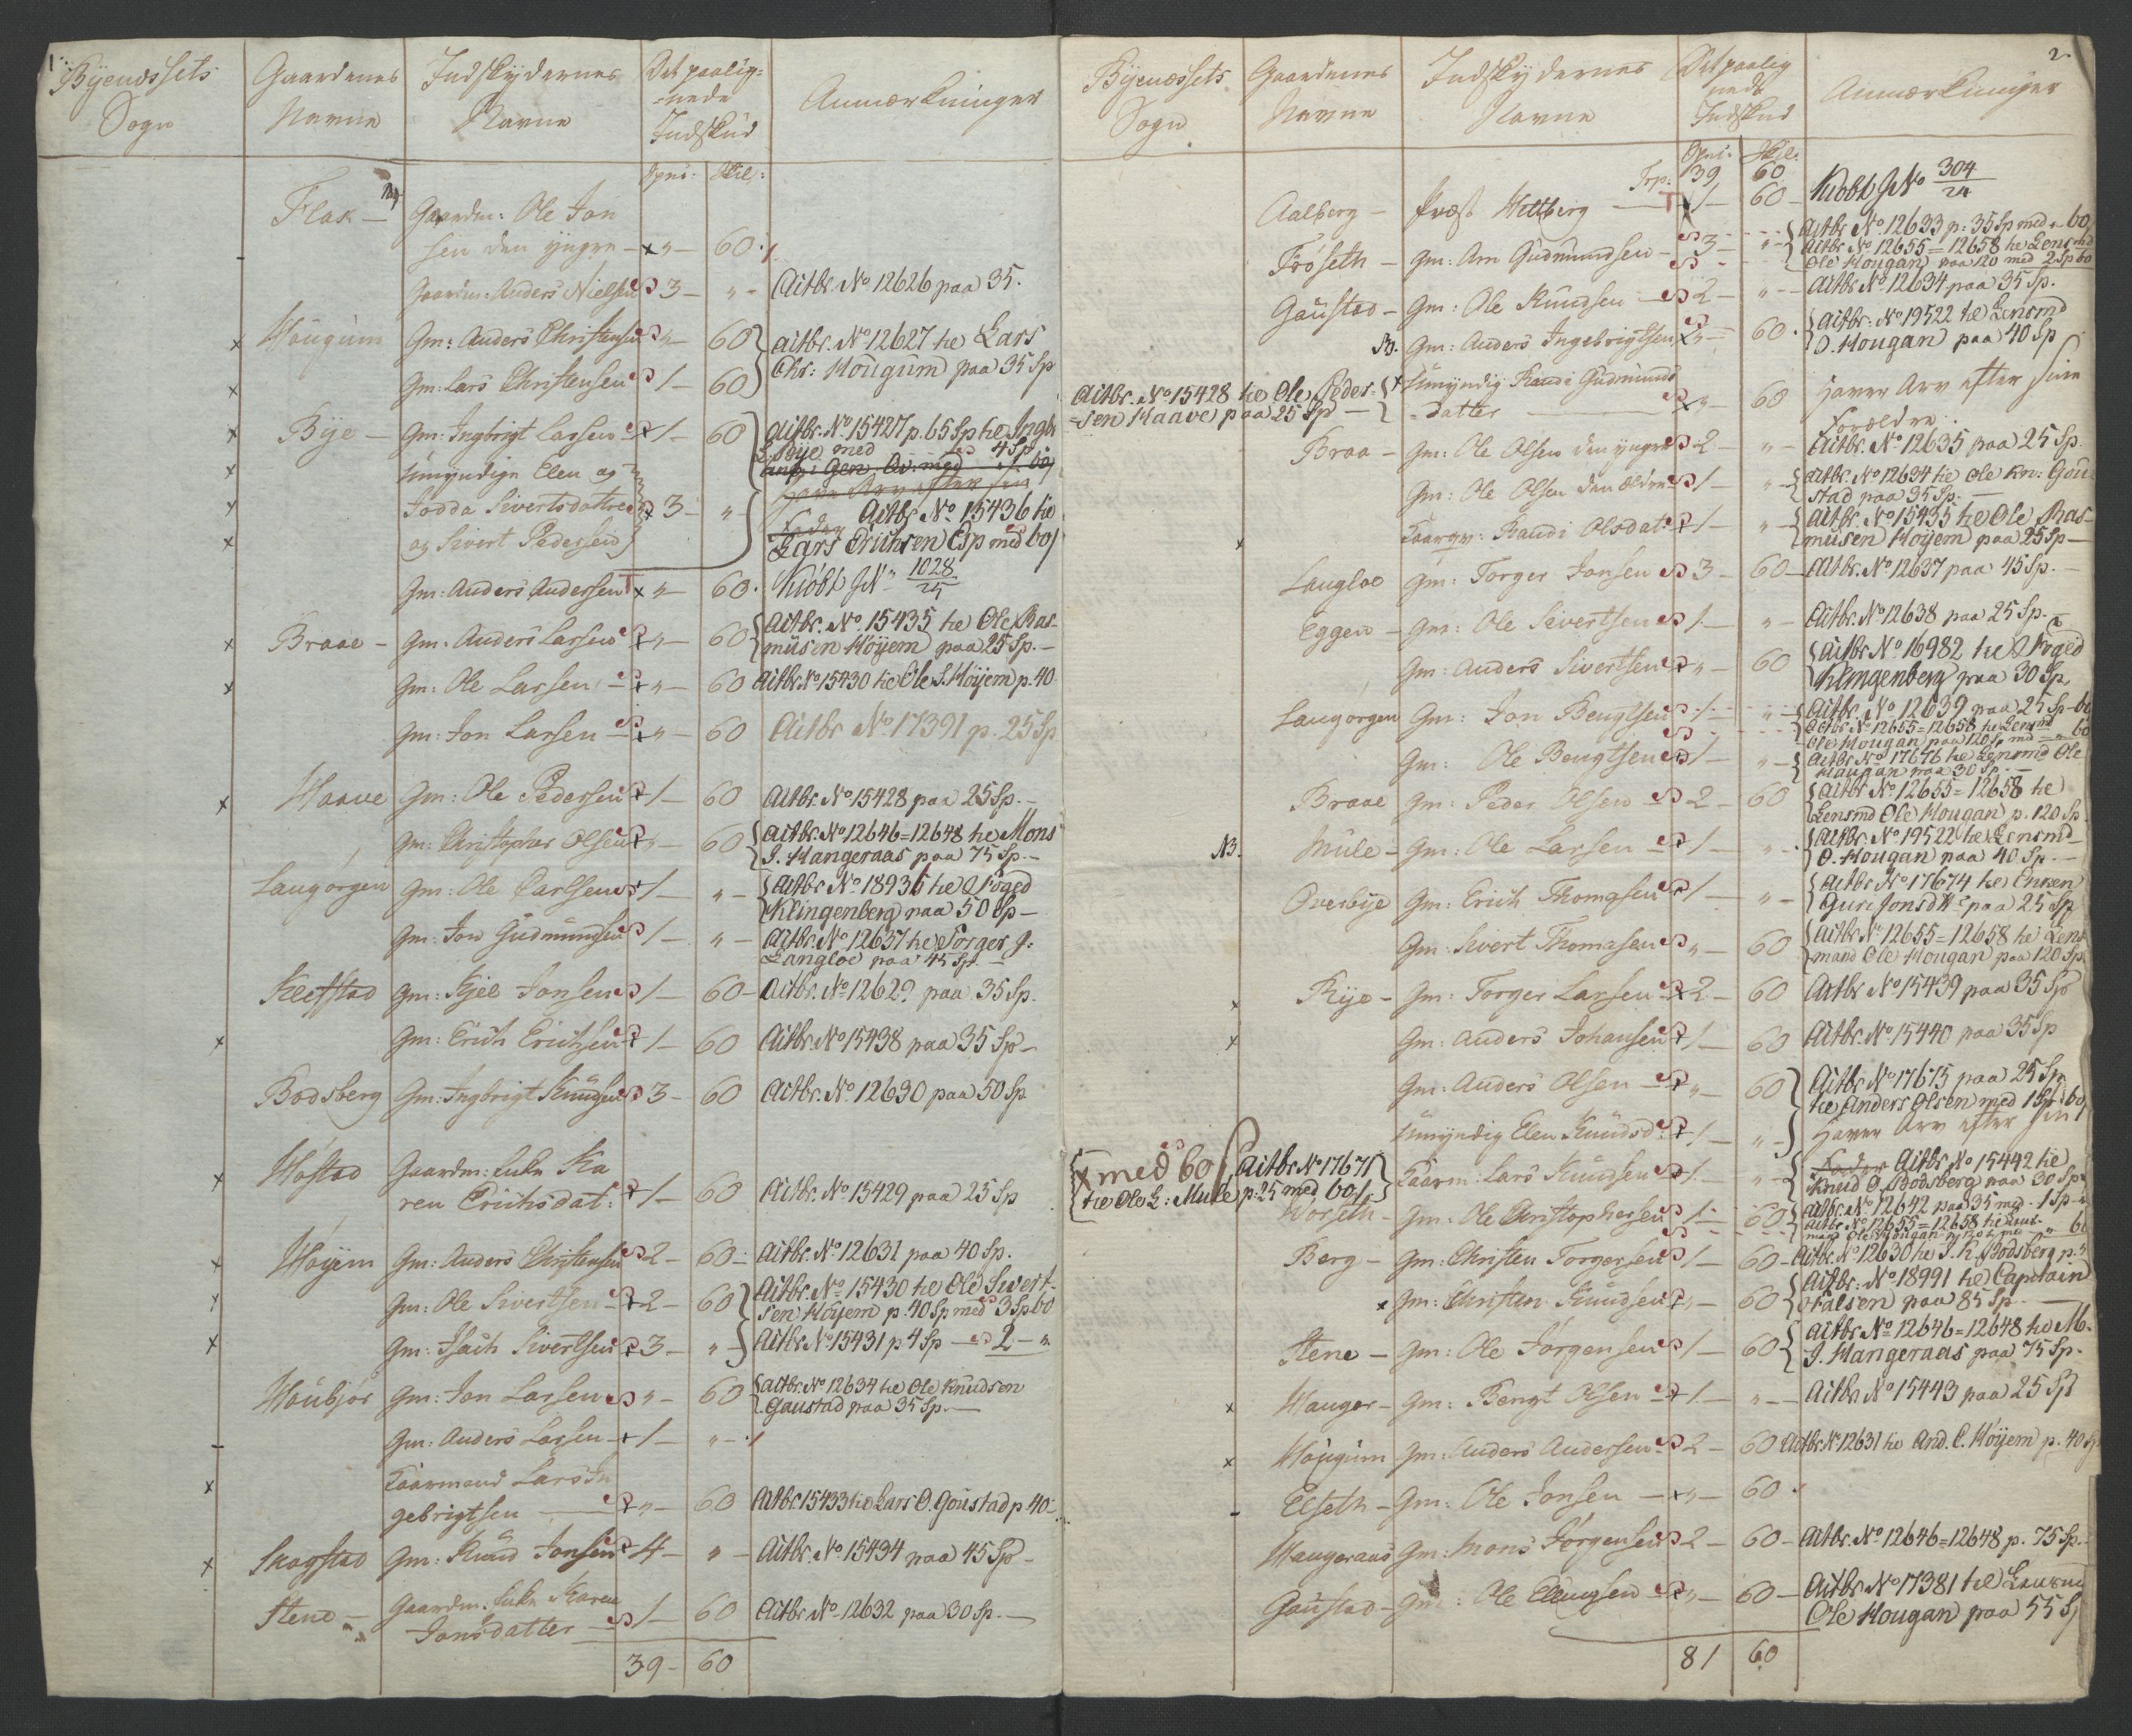 1
Byenæssets Sogn | Gaardenes Navne | Indskydernes Navne | Det paalignede Indskud | Anmærkninger
Spns: | Skil:
Flak — Gaardm: Ole Jon
sen den yngre — x „ — 60.
Gaardm: Anders Nielsen 3 — „ — Actbr. No 12626 paa 35.
x Hougum Gm: Anders Christensen „ — 60 } actbr. No 12627 he Lars
x Gm: Lars Christensen 1 — 60 } Chr: Hougum paa 35 Sp
x Bye — Gm: Ingbrigt Larsen 1 — 60 actbr. No 15427 p. 65 Sp he Ingbr
L. Bye med 4 Sp
x umyndige Elen og
Jodda Sivertsdattre 3 — „ — Actbr No 15436 he
x og Sivert Pedersen Lars Erichsen Esp med 60 s
Gm: Anders Andersen x „ — 60. Kiøbt J No 1028/25
x Braae — Gm: Anders Larsen „ — 60 { Actbr. No 15435 he Ole Ras-
musen Høyem paa 25 Sp. —
x Gm: Ole Larsen — „ — 60 Actbr. No 15430 he Ole S. Høyem p. 40
Gm: Jon Larsen — „ — 60 Actbr No 17391 p. 25 Sp
x Haave Gm: Ole Pedersen 1 — 60 Actbr. No 15428 paa 25 Sp. —
Gm: Christopher Olsen „ — 60 { Actbr. No 12646=12648 he Mons
J. Hangeraas paa 75 Sp. —
Langørgen Gm: Ole Carlsen 1 — „ — { Actbr No 18936 he Foged
Klingenberg paa 50 Sp —
Gm: Jon Gudmundsen 1 — „ — Actbr. No 12637 he Torger J:
Langloe paa 45 Sp. —
Klefstad Gm: Kjel Jonsen 1 — 60 — Actbr. No 12629 paa 35 Sp.
x Gm: Erich Erichsen 1 — 60 Actbr. No 15438 paa 35 Sp —
Bodsberg Gm: Ingbrigt Knudsen 3 — 60 Actbr. No 12630 paa 50 Sp
x Høstad Gaardm: Enke Ka
ren Erichsdat: 1 — 60 Actbr. No 15429 paa 25 Sp
x Høyem Gm: Anders Christensen 2 — 60 — Actbr. No 12631 paa 40 Sp.
x Gm: Ole Sivertsen 2 — 60 } Actbr. No 15430 he Ole Sivert-
sen Høyem p. 40 Sp med 3 Sp 60
x Gm: Isach Sivertsen 3 — „ — } Actbr. No 15431 p 4 Sp — 2 — „
Houbjør Gm: Jon Larsen „ — 60 { actbr. No 12634 he Ole Knudsen
Gaustad paa 35 Sp. —
Gm: Anders Larsen 1 — „ —
x Kaarmand Lars In
gebrigtsen „ — 60 Actbr. 15433 he Lars O. Goustad p. 40 —
x Skogstad Gm: Knud Jonsen 4 — „ — Actbr. No 15434 paa 45 Sp —
Stene — Gaardm. Enke Karen
Jonsdatter 1 — 60 Actbr No 12632 paa 30 Sp. —
39 — 60
2.
Byenæssets Sogn | Gaardenes Navne | Indskydernes Navne | Det paalignede Indskud | Anmærkninger
Spns: | Skil:
Trp: 39 60
Aalberg — Præst Wettberg — 1 — 60 — Kiøbt J No 304/24
Frøseth — Gm: Arn Gudmundsen — 3 — „ — { Actbr No 12633 p: 35 Sp med „ 60
Actbr. No 12655=12658 he Lensmd
Ole Hougan paa 120 med 2 Sp 60
Gaustad — Gm: Ole Knudsen — 2 — „ — Actbr. No 12634 paa 35 Sp.
NB. Gm: Anders Ingebrigtsen „ — 60. { Actbr. No 19522 he Lensmd
O. Hougan paa 40 Sp
Actbr. No 15428 he Ole Peder-
sen Haave paa 25 Sp —
x Umyndig Randi Gudmunds
datter — „ 60 Haver Arv efter sine
Forældre
Braa — Gm: Ole Olsen den yngre 2 — „ — Actbr. No 12635 paa 25 Sp.
Gm: Ole Olsen den ældre 1 — „ — { Actbr. No 12634 he Ole Kn: Gou
stad paa 35 Sp. —
x Kaarqv: Randi Olsdat 1 — „ — { Actbr. No 15435 he Ole Ras-
musen Høyem paa 25 Sp —
Langloe Gm: Torger Jonsen 3 — 60 — Actbr. No 12637 paa 45 Sp. —
Eggen — Gm: Ole Sivertsen 1. — „ — Actbr. No 12638 paa 25 Sp. —
Gm: Anders Sivertsen „ — 60 { Actbr No 16982 he Foged
Klingenberg paa 30 Sp
Langørgen Gm: Jon Bengtsen 1 — „ — { Actbr. No 12639 paa 25 Sp — 60
Actbr. No 12655=12658 he Lensmd
Ole Hougan paa 120 Sp med — „ 60
Gm: Ole Bengtsen 1 — „ — { Actbr No 17676 he Lensmd Ole
Hougan paa 30 Sp. —
Braae Gm: Peder Olsen 2 — 60 { Actbr No 12655=12658 he
Lensmd Ole Hougan p. 120 Sp.
NB. Mule — Gm: Ole Larsen — 1 — „ — { Actbr. No 19522 he Lensmd
O. Hougan paa 40 Sp. —
Overbye Gm: Erich Thomasen 1 — „ — { Actbr No 17674 he Enken
Guri Jonsd. paa 25 Sp
Gm: Sivert Thomasen „ — 60 { Actbr No 12655=12658 he Lens
mand Ole Hougan paa 120 Sp.
x Rye — Gm: Torger Larsen 2 — 60 Actbr No 15439 paa 35 Sp
x Gm: Anders Johansen 1 — 60 Actbr. No 15440 paa 35 Sp
Gm: Anders Olsen — „ — 60 } Actbr No 17675 paa 25 Sp
he Anders Olsen med 1 Sp 60
Umyndig Elen Knudsd: 1 — „ — } Haver Arv efter sin
Fader
x med 60 s Actbr No 17671
he Ole L: Mule p. 25 med 60 s
Kaarm: Lars Knudsen 1. — „ — { Actbr. No 15442 he
Knud O. Bodsberg paa 30 Sp
Worseth — Gm: Ole Christophersen 1 — 60 { Actbr. No 12642 paa 35 med 1 Sp —
Actbr No 12655=12658 he Lens-
mand Ole Hougan p. 120 s. med „ 60
Berg — Gm: Christen Torgersen 1 — 60 — Actbr. No 12630 he I. K. Bodsberg p. 5
x Gm: Christen Knudsen „ — 60 { Actbr: No 18991 he Captain
Falsen paa 85 Sp. —
Stene — Gm: Ole Jørgensen 1 — 60 { Actbr. No 12646=12648 he M.
J. Hangeraas paa 75 Sp.
x Hanger — Gm: Bengt Olsen 1. — „ — Actbr. No 15443 paa 25 Sp
x Hougum Gm: Anders Andersen 2 — 60 Actbr. No 12631 he And. C. Høyem p. 40 Sp
Elseth — Gm: Ole Jonsen — „ — 60.
Hangeraas Gm: Mons Jørgensen 2 — 60 — Actbr. No 12646=12648 p. 75 Sp.
Gaustad — Gm: Ole Ellingsen „ — 60 — Actbr. No 17381 he Lensmd
Ole Hougan paa 55 S
81 60